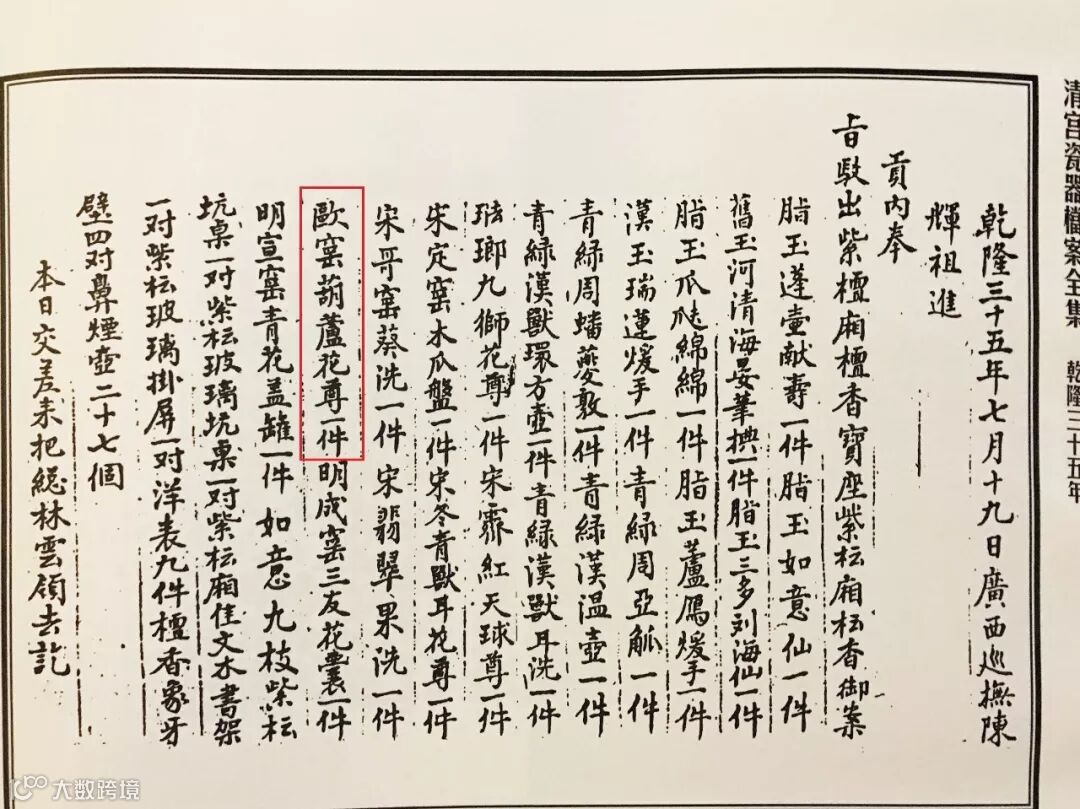 清宫瓷器檔案全集　乾隆三十五年
乾隆三十五年七月十九日廣西巡撫陳
輝祖進
貢內奉
旨駁出紫檀廂檀香寶座紫枟廂枟香御案
脂玉蓬壺献壽一件脂玉如意仙一件
舊玉河清海晏筆㯋一件脂玉三多刘海仙一件
脂玉瓜瓞綿綿一件脂玉蘆鴈煖手一件
漢玉瑞蓮煖手一件青綠周亞觚一件
青綠周蟠夔敦一件青綠漢温壺一件
青綠漢獸環方壺一件青綠漢獸耳洗一件
琺瑯九獅花尊一件宋霽紅天球尊一件
宋定窯木瓜盤一件宋冬青獸耳花尊一件
宋哥窯葵洗一件宋翡翠果洗一件
歐窯葫蘆花尊一件明成窯三友花囊一件
明宣窯青花盖罐一件如意九枝紫枟
坑桌一对紫枟玻璃坑桌一对紫枟廂佳文木書架
一对紫枟玻璃掛屏一对洋表九件檀香象牙
壁四对鼻煙壺二十七個
本日交差来把総林雲領去訖
大数跨境